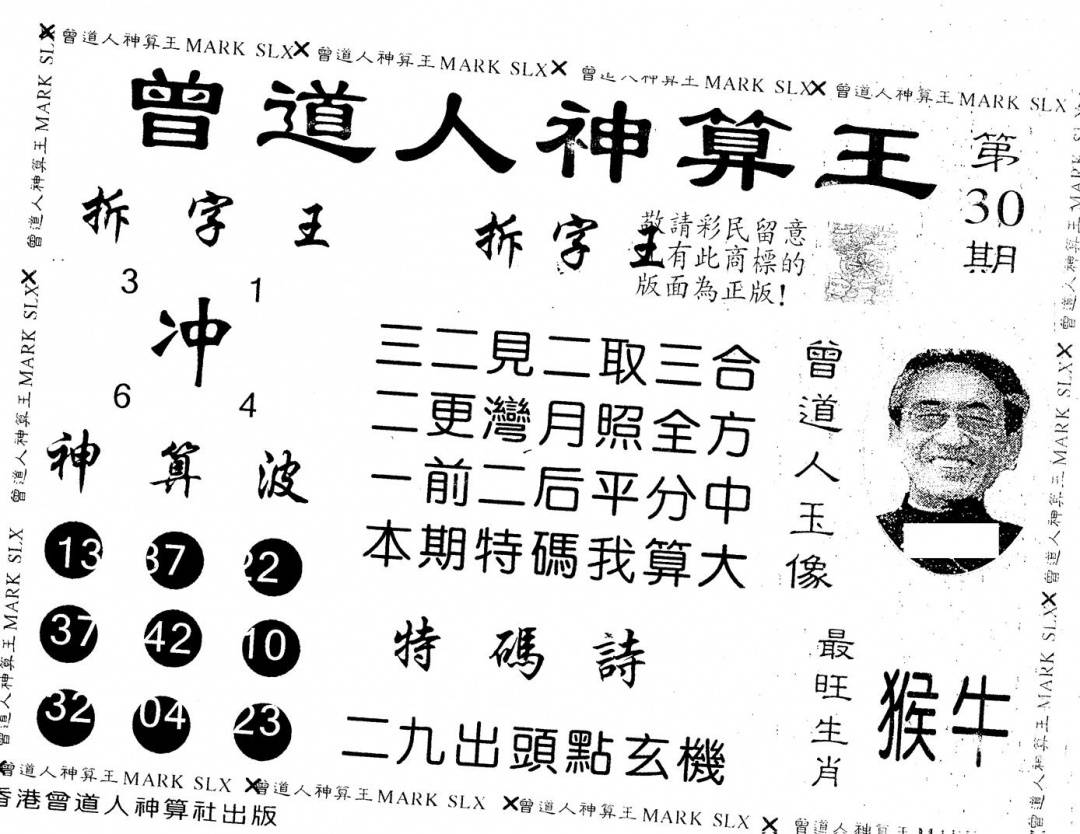 曾道人神算王 MARK SLX 曾道人神算王 MARK SLX 曾道人神算王 MARK SLX 曾道人神算王 MARK SLX
曾道人神算王
第
30
期
拆字王
拆字王
敬請彩民留意
有此商標的
版面為正版!
3 1
冲
6 4
三二見二取三合
二更灣月照全方
一前二后平分中
本期特碼我算大
曾道人玉像
神算波
13 37 22
37 42 10
32 04 23
特碼詩
二九出頭點玄機
最旺生肖
猴牛
曾道人神算王 MARK SLX
曾道人神算王 MARK SLX
曾道人神算王 MARK SLX
曾道人神算王 MARK SLX
曾道人神算王 MARK SLX
曾道人神算王 MARK SLX
曾道人神算王 MARK SLX 曾道人神算王 MARK SLX 曾道人神算王 MARK SLX 曾道人神算王
香港曾道人神算社出版